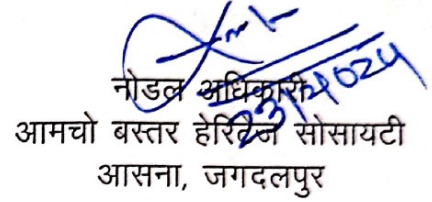 नोडल अधिकारी
आमचो बस्तर हेरिटेज सोसायटी
आसना, जगदलपुर